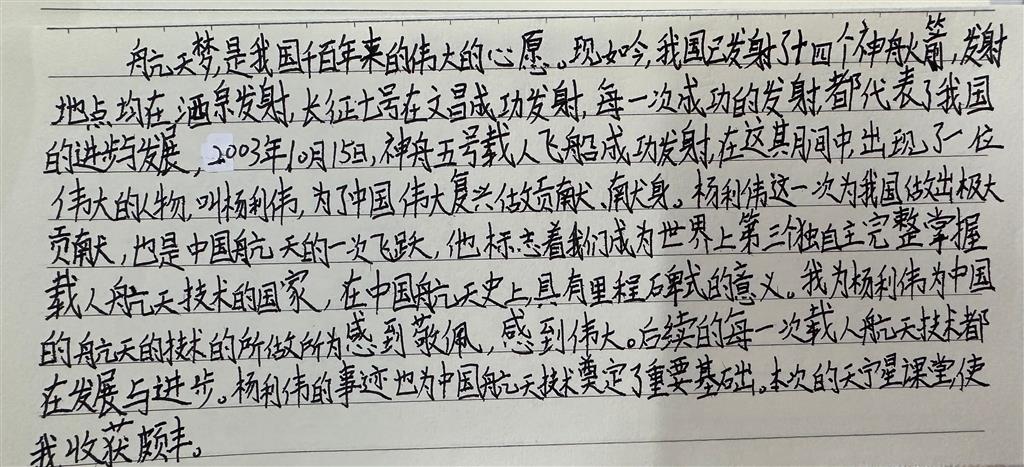 航天梦,是我国千百年来的伟大的心愿。现如今,我国已发射了十四个神舟火箭,发射
地点均在酒泉发射,长征七号在文昌成功发射,每一次成功的发射,都代表了我国
的进步与发展,2003年10月15日,神舟五号载人飞船成功发射,在这其月间中,出现了一位
伟大的人物,叫杨利伟,为了中国伟大复兴做贡献、献身。杨利伟这一次为我国做出极大
贡献,也是中国航天的一次飞跃,他标志着我们成为世界上第三个独自主完整掌握
载人航天技术的国家,在中国航天史上,具有里程碑式的意义。我为杨利伟为中国
的航天的技术的所做所为感到敬佩,感到伟大。后续的每一次载人航天技术都
在发展与进步。杨利伟的事迹也为中国航天技术奠定了重要基础。本次的天宁星课堂,使
我收获颇丰。